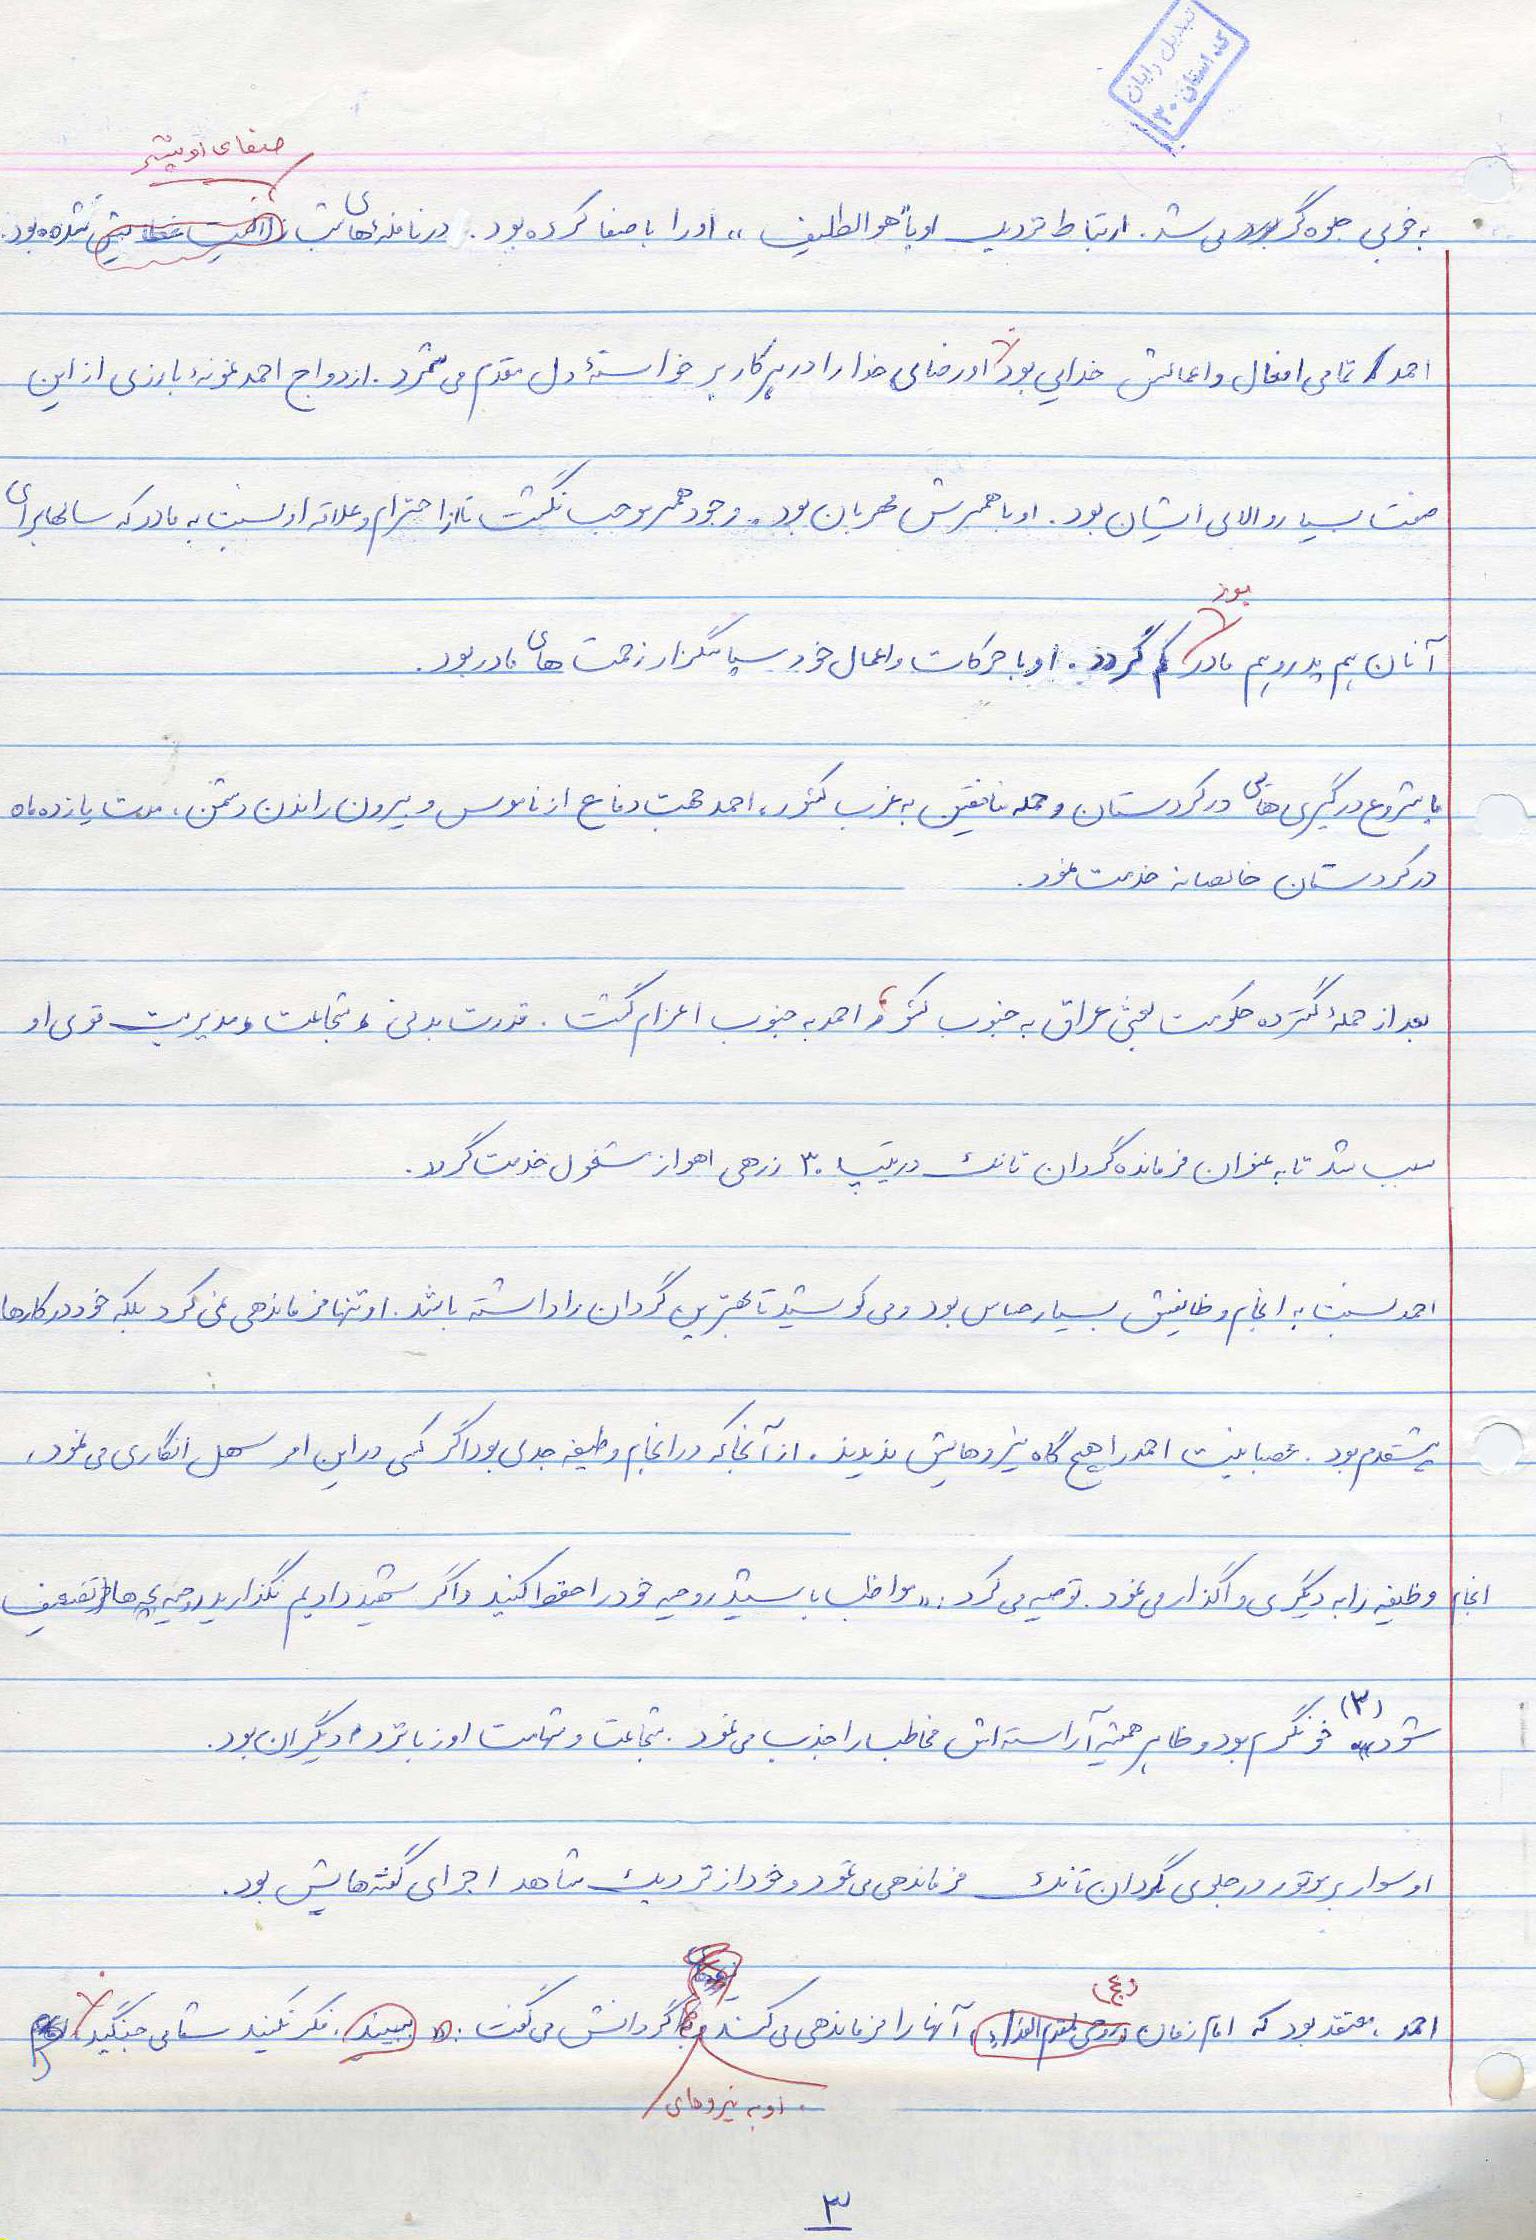 تبدیل رایان
کد استان: ۳۰
صفای او بیشتر
به خوبی جلوه گر می شد. ارتباط نزدیک او با "هو الطیف" او را با صفا کرده بود. در نافله های شب شده بود.
احمد تمامی افعال و اعمالش خدایی بود. او رضای خدا را در هر کار بر خواستهٔ دل مقدم می شمرد. ازدواج احمد نمونهٔ بارزی از این
صفت بسیار والای ایشان بود. او با همسرش مهربان بود. وجود همسر موجب نگشت تا از احترام و علاقه او نسبت به مادر که سالها برای
آنان هم پدر و هم مادر بود کم گردد. او با حرکات و اعمال خود سپاسگزار زحمت های مادر بود.
با شروع درگیری هایی در کردستان و حمله منافقین به غرب کشور، احمد جهت دفاع از ناموس و بیرون راندن دشمن، مدت یازده ماه
در کردستان خالصانه خدمت نمود.
بعد از حملهٔ گسترده حکومت بعثی عراق به جنوب کشور، احمد به جنوب اعزام گشت. قدرت بدنی و شجاعت و مدیریت قوی او
سبب شد تا به عنوان فرمانده گردان تانک در تیپ ۳۰ زرهی اهواز مشغول خدمت گردد.
احمد نسبت به انجام وظایفش بسیار حساس بود و می کوشید تا بهترین گردان را داشته باشد. او تنها فرماندهی نمی کرد بلکه خود در کارها
پیشقدم بود. عصبانیت احمد را هیچ گاه نیروهایش ندیدند. از آنجا که در انجام وظیفه جدی بود اگر کسی در این امر سهل انگاری می نمود،
انجام وظیفه را به دیگری واگذار می نمود. توصیه می کرد: «مواظب باشید روحیه خود را حفظ کنید و اگر شهید دادیم نگذارید روحیه بچه ها تضعیف
شود» (۳) خونگرم بود و ظاهر همیشه آراسته اش مخاطب را جذب می نمود. شجاعت و شهامت او زبانزد دیگران بود.
او سوار بر موتور در جلوی گردان تانک فرماندهی می نمود و خود از نزدیک شاهد اجرای گفته هایش بود.
احمد، معتقد بود که امام زمان (عج) آنها را فرماندهی می کند گردانش می گفت: «ببینید، فکر نکنید شما می جنگید،
. او به نیروهای
۳